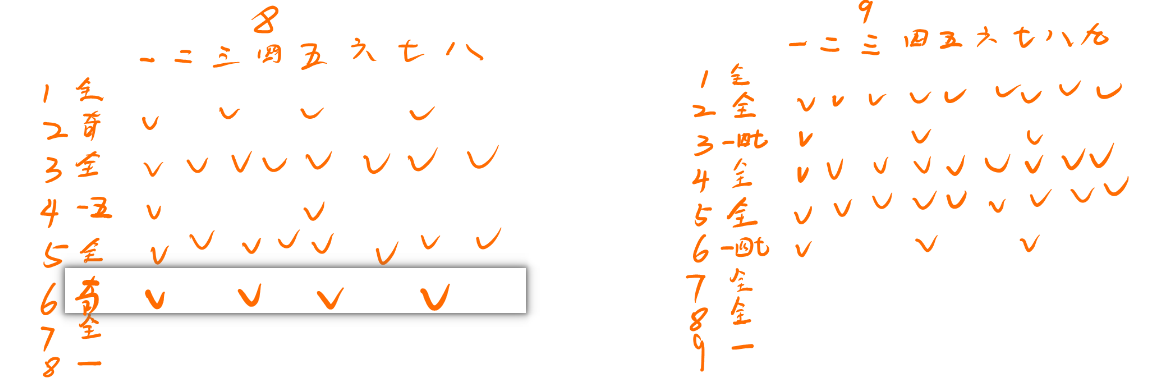 8
一 二 三 四 五 六 七 八
1 全
2 奇 ✓ ✓ ✓ ✓
3 全 ✓ ✓ ✓ ✓ ✓ ✓ ✓ ✓
4 一五 ✓ ✓
5 全 ✓ ✓ ✓ ✓ ✓ ✓ ✓ ✓
6 奇 ✓ ✓ ✓ ✓
7 全
8 一
9
一 二 三 四 五 六 七 八 九
1 全
2 全 ✓ ✓ ✓ ✓ ✓ ✓ ✓ ✓ ✓
3 一四七 ✓ ✓ ✓
4 全 ✓ ✓ ✓ ✓ ✓ ✓ ✓ ✓ ✓
5 全 ✓ ✓ ✓ ✓ ✓ ✓ ✓ ✓ ✓
6 一四七 ✓ ✓ ✓
7 全
8 全
9 一